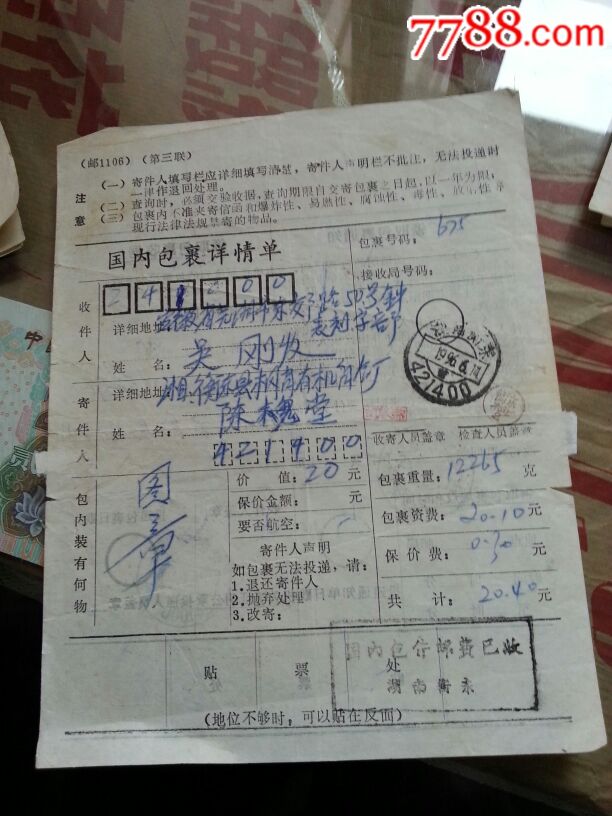 7788.com
(邮1106)(第三联)
注意
(一)寄件人填写栏应详细填写清楚，寄件人声明栏不批注，无法投递时
一律作退回处理。
(二)查询时，必须交验收据，查询期限自交寄包裹之日起，以一年为限；
(三)包裹内不准夹寄信函和爆炸性、易燃性、腐蚀性、毒性、放射性
现行法律法规禁寄的物品。
国内包裹详情单
包裹号码：675
接收局号码：
收件人
241200
详细地址
50号钟
表刻字部
姓名：吴刚收
寄件人
详细地址
姓名：陈 堂
421400
421400
收寄人员盖章 检查人员盖章
包内装有何物
图章
价值：20元
保价金额：元
要否航空：
寄件人声明
如包裹无法投递，请：
1.退还寄件人
2.抛弃处理
3.改寄：
包裹重量：12265克
包裹资费：20.10元
保价费：0.30元
共计：20.40元
贴 票 处
国内包件邮费已收
湖南衡东
(地位不够时，可以贴在反面)